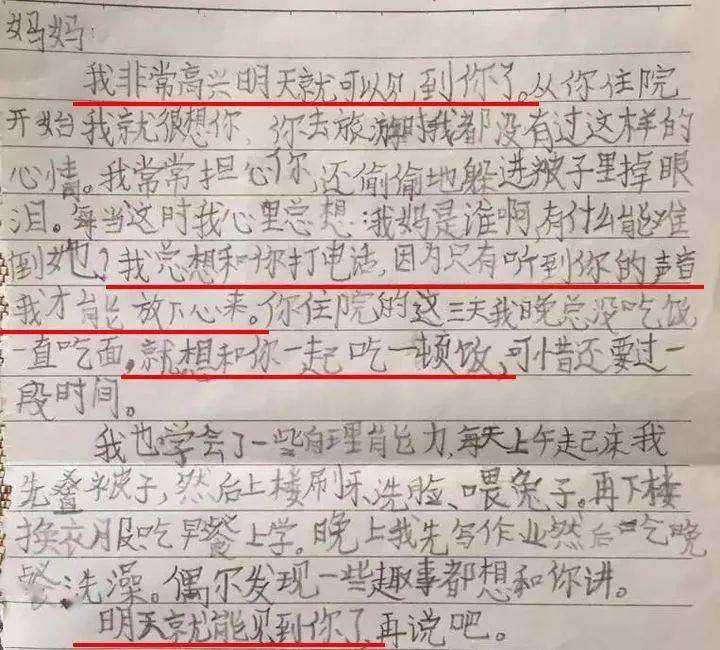 妈妈:
我非常高兴明天就可以见到你了。从你住院
开始我就很想你，你去旅游时我都没有过这样的
心情。我常常担心你，还偷偷地躲进被子里掉眼
泪。每当这时我心里总想:我妈是谁啊，有什么能难
倒她？我总想和你打电话，因为只有听到你的声音
我才能放下心来。你住院的这三天我晚总没吃饭
一直吃面，就想和你一起吃一顿饭，可惜还要过一
段时间。
我也学会了一些自理能力，每天上午起床我
先叠被子，然后上楼刷牙、洗脸、喂兔子。再下楼
换衣服吃早餐上学。晚上我先写作业然后吃晚
餐、洗澡。偶尔发现一些趣事都想和你讲。
明天就能见到你了，再说吧。